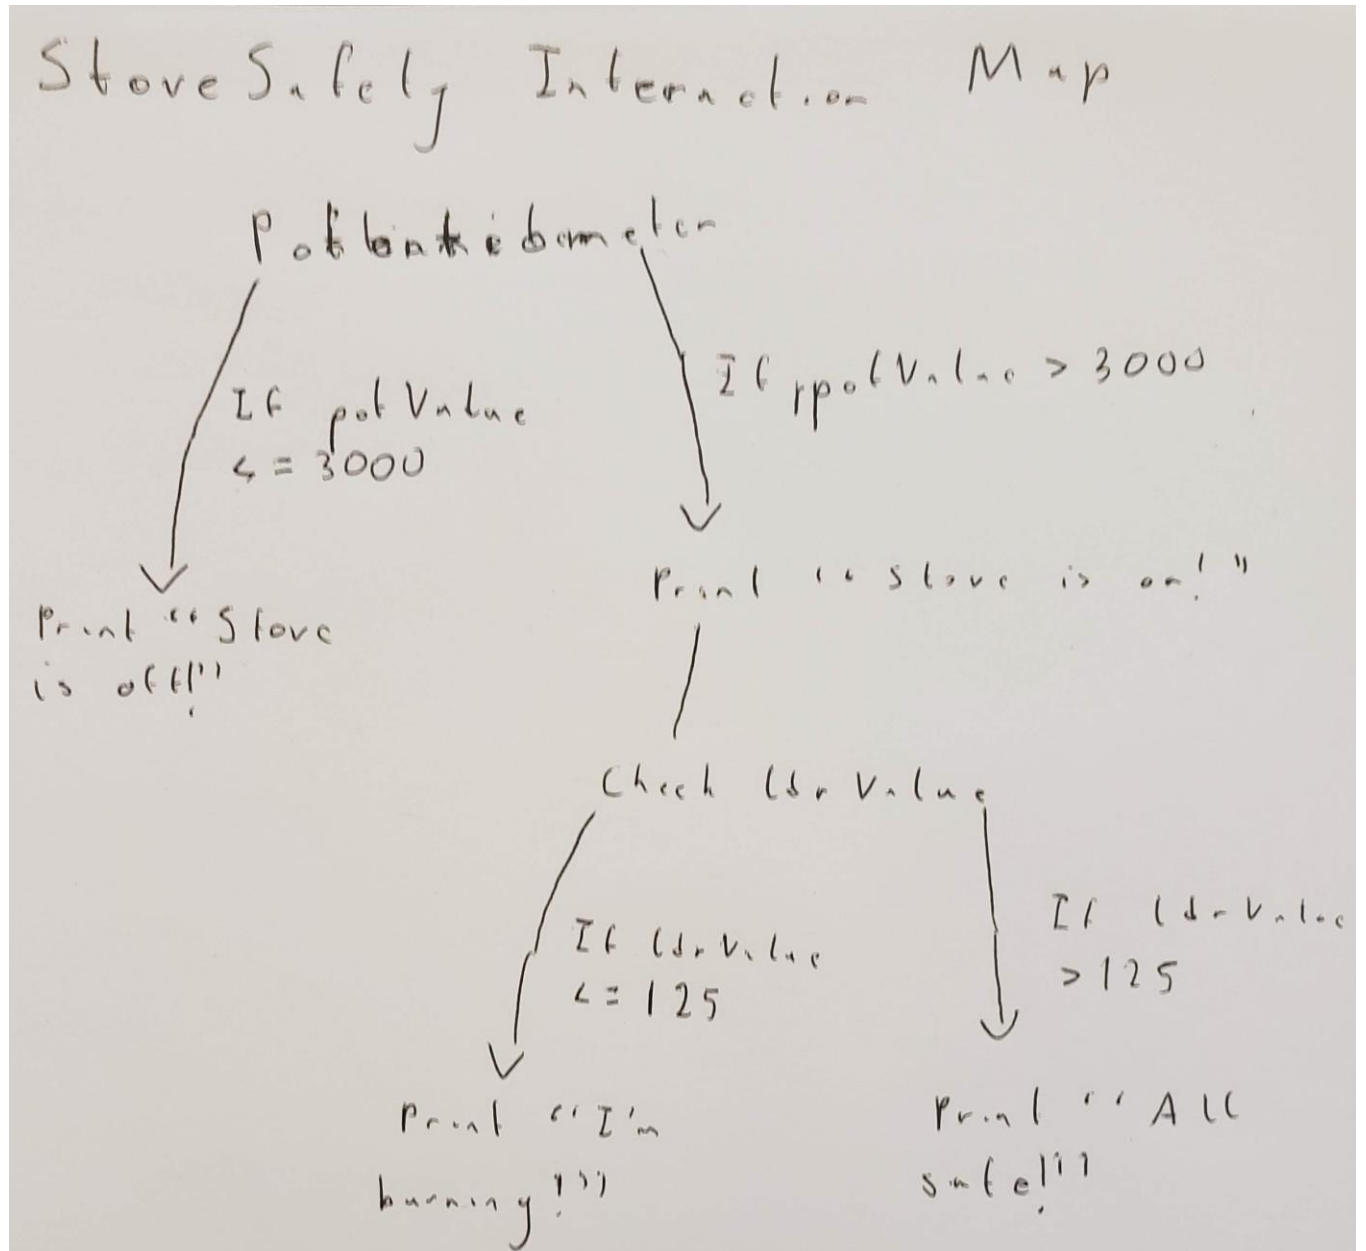 Stove Safety Interaction Map
Potentiometer
If potValue
<= 3000
If potValue > 3000
Print "Stove
is off!"
Print "Stove is on!"
Check ldrValue
If ldrValue
<= 125
If ldrValue
>125
Print "I'm
burning!"
Print "All
safe!"